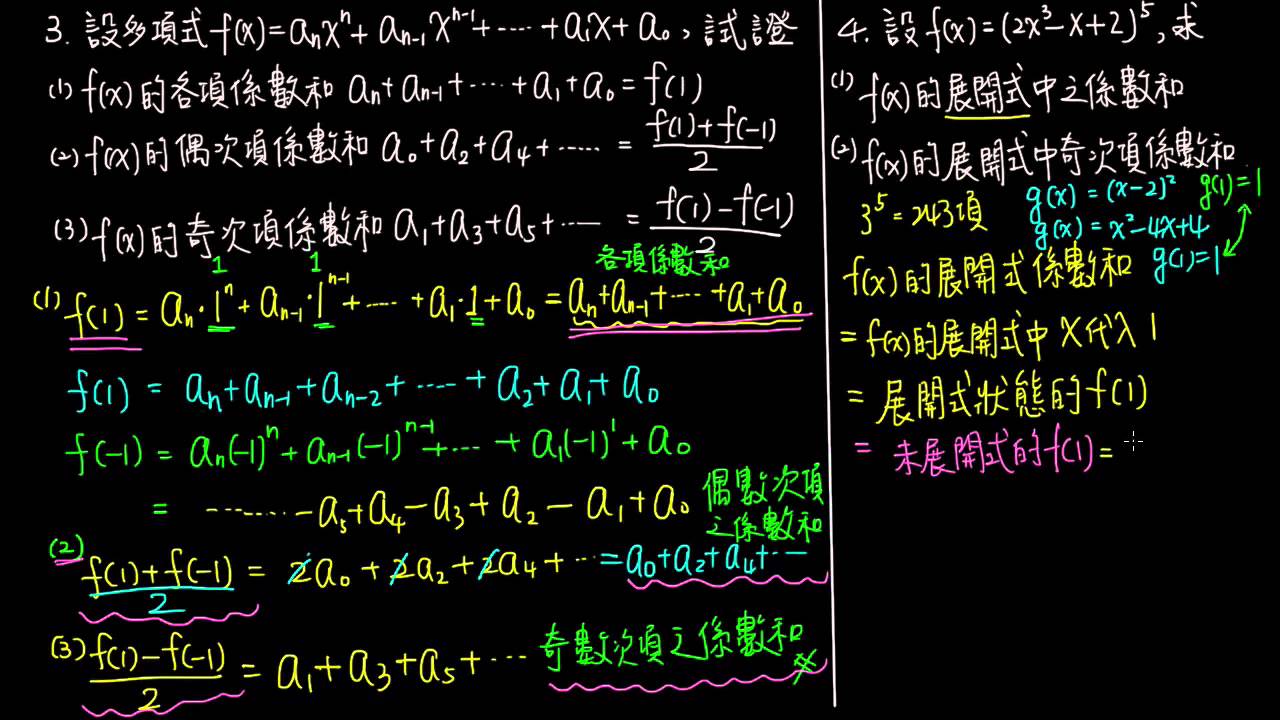 3. 設多項式 f(x)=aₙxⁿ+aₙ₋₁xⁿ⁻¹+⋯⋯+a₁x+a₀，試證
(1) f(x)的各項係數和 aₙ+aₙ₋₁+⋯⋯+a₁+a₀=f(1)
(2) f(x)的偶次項係數和 a₀+a₂+a₄+⋯⋯ = (f(1)+f(-1))/2
(3) f(x)的奇次項係數和 a₁+a₃+a₅+⋯⋯ = (f(1)-f(-1))/2
各項係數和
1 1
(1) f(1) = aₙ·1ⁿ+aₙ₋₁·1ⁿ⁻¹+⋯⋯+a₁·1+a₀ = aₙ+aₙ₋₁+⋯⋯+a₁+a₀
f(1) = aₙ+aₙ₋₁+aₙ₋₂+⋯⋯+a₂+a₁+a₀
f(-1) = aₙ(-1)ⁿ+aₙ₋₁(-1)ⁿ⁻¹+⋯⋯+a₁(-1)¹+a₀
= ⋯⋯⋯-a₅+a₄-a₃+a₂-a₁+a₀
偶數次項
之係數和
(2) (f(1)+f(-1))/2 = 2a₀+2a₂+2a₄+⋯=a₀+a₂+a₄+⋯
(3) (f(1)-f(-1))/2 = a₁+a₃+a₅+⋯ 奇數次項之係數和
4. 設 f(x)=(2x³-x+2)⁵, 求
(1) f(x)的展開式中之係數和
(2) f(x)的展開式中奇次項係數和
3⁵=243項
g(x)=(x-2)² g(1)=1
g(x)=x²-4x+4
g(1)=1
f(x)的展開式係數和
= f(x)的展開式中 x代入1
= 展開式狀態的f(1)
= 未展開式的f(1)=